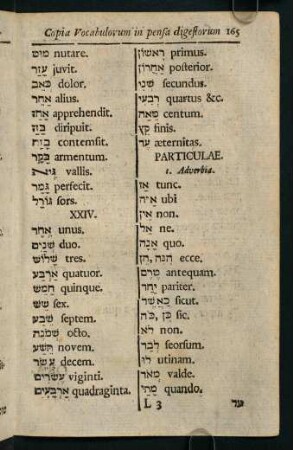 Copia Vocabulorum in pensa digestorum 165
מוֹט nutare.
עָזַר juvit.
כְּאֵב dolor.
אַחֵר alius.
אָחַז apprehendit.
בָּזַז diripuit.
בָּזָה contemsit.
בָּקָר armentum.
vallis.
גָּמַר perfecit.
גּוֹרָל sors.
XXIV.
אֶחָד unus.
שְׁנַיִם duo.
שָׁלוֹשׁ tres.
אַרְבַּע quatuor.
חָמֵשׁ quinque.
שֵׁשׁ sex.
שֶׁבַע septem.
שְׁמֹנֶה octo.
תֵּשַׁע novem.
עֶשֶׂר decem.
עֶשְׂרִים viginti.
אַרְבָּעִים quadraginta.
רִאשׁוֹן primus.
אַחֲרוֹן posterior.
שֵׁנִי secundus.
רְבִעִי quartus &c.
מֵאָה centum.
קֵץ finis.
עַד æternitas.
PARTICULAE.
1. Adverbia.
אָז tunc.
אַיֵּה ubi
אֵין non.
אַל ne.
אָנָה quo.
הִנֵּה, הֵן ecce.
טֶרֶם antequam.
יַחַד pariter.
כַּאֲשֶׁר sicut.
כֵּן, כֹּה sic.
לֹא non.
לְבַד seorsum.
לוּ utinam.
מְאֹד valde.
מָתַי quando.
L 3
עד